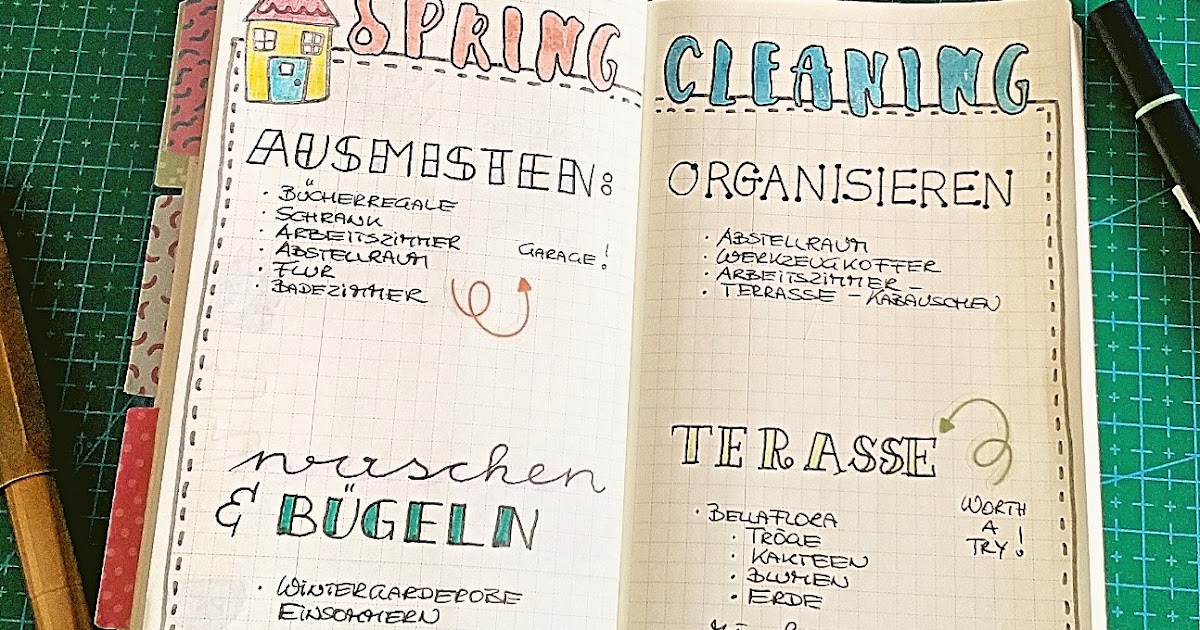 SPRING
CLEANING
AUSMISTEN:
· BÜCHERREGALE
· SCHRANK
· ARBEITSZIMMER
· ABSTELLRAUM
· FLUR
· BADEZIMMER
GARAGE!
waschen
& BÜGELN
· WINTERGARDEROBE
EINSOMMERN
ORGANISIEREN
· ABSTELLRAUM
· WERKZEUGKOFFER
· ARBEITSZIMMER -
· TERRASSE - KABÄUSCHEN
TERASSE
· BELLAFLORA
· TRÖGE
· KAKTEEN
· BLUMEN
· ERDE
WORTH
A
TRY!